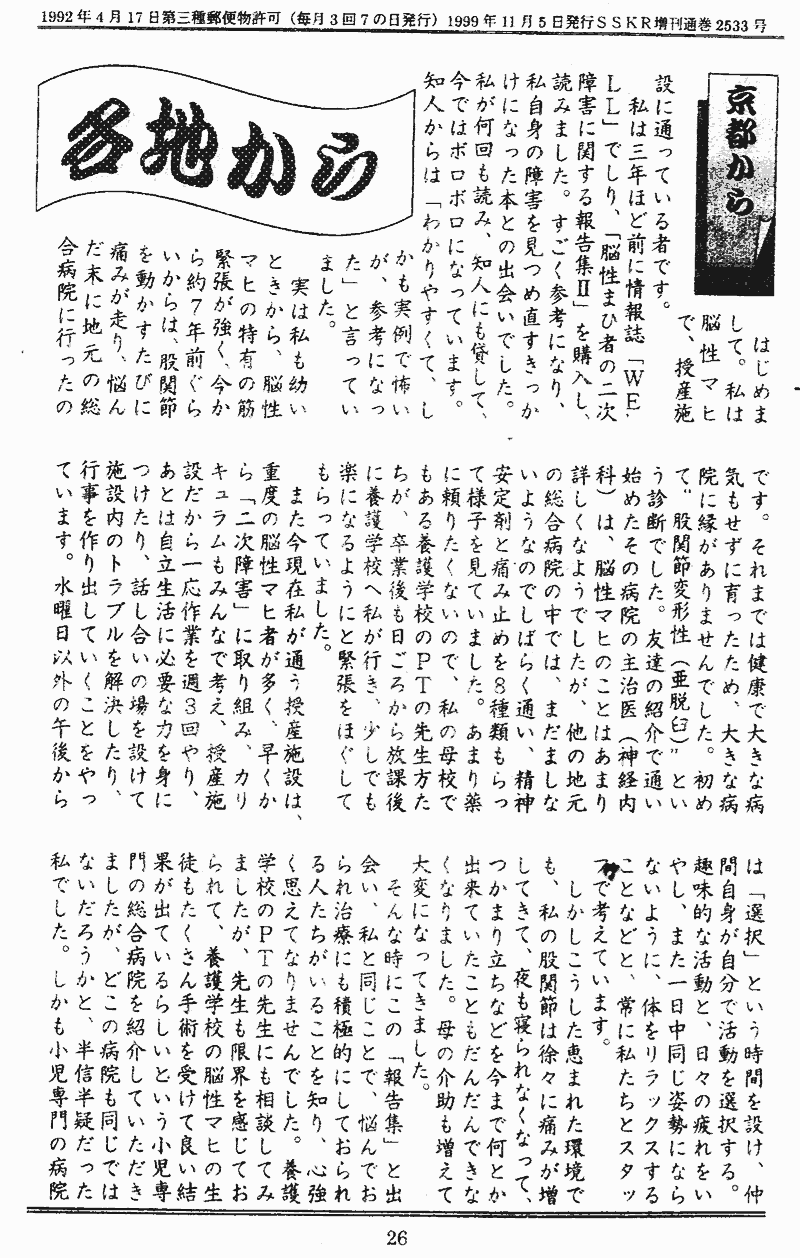 1992年4月17日第三種郵便物許可（毎月3回7の日発行）1999年11月5日発行ＳＳＫＲ増刊通巻2533号
各地から
京都から
はじめま
して。私は
脳性マヒ
で、授産施
設に通っている者です。
私は三年ほど前に情報誌「ＷＥ
ＬＬ」でしり、「脳性まひ者の二次
障害に関する報告集Ⅱ」を購入し、
読みました。すごく参考になり、
私自身の障害を見つめ直すきっか
けになった本との出会いでした。
私が何回も読み、知人にも貸して、
今ではボロボロになっています。
知人からは「わかりやすくて、し
かも実例で怖い
が、参考になっ
た」と言ってい
ました。
実は私も幼い
ときから、脳性
マヒの特有の筋
緊張が強く、今か
ら約７年前ぐら
いからは、股関節
を動かすたびに
痛みが走り、悩ん
だ末に地元の総
合病院に行ったの
です。それまでは健康で大きな病
気もせずに育ったため、大きな病
院に縁がありませんでした。初め
て〝股関節変形性（亜脱臼）〟とい
う診断でした。友達の紹介で通い
始めたその病院の主治医（神経内
科）は、脳性マヒのことはあまり
詳しくなようでしたが、他の地元
の総合病院の中では、まだましな
いようなのでしばらく通い、精神
安定剤と痛み止めを８種類もらっ
て様子を見ていました。あまり薬
に頼りたくないので、私の母校で
もある養護学校のＰＴの先生方た
ちが、卒業後も日ごろから放課後
に養護学校へ私が行き、少しでも
楽になるようにと緊張をほぐして
もらっていました。
また今現在私が通う授産施設は、
重度の脳性マヒ者が多く、早くか
ら「二次障害」に取り組み、カリ
キュラムもみんなで考え、授産施
設だから一応作業を週３回やり、
あとは自立生活に必要な力を身に
つけたり、話し合いの場を設けて
施設内のトラブルを解決したり、
行事を作り出していくことをやっ
ています。水曜日以外の午後から
は「選択」という時間を設け、仲
間自身が自分で活動を選択する。
趣味的な活動と、日々の疲れをい
やし、また一日中同じ姿勢になら
ないように、体をリラックスする
ことなどと、常に私たちとスタッ
フで考えています。
しかしこうした恵まれた環境で
も、私の股関節は徐々に痛みが増
してきて、夜も寝られなくなって、
つかまり立ちなどを今まで何とか
出来ていたこともだんだんできな
くなりました。母の介助も増えて
大変になってきました。
そんな時にこの「報告集」と出
会い、私と同じことで、悩んでお
られ治療にも積極的にしておられ
る人たちがいることを知り、心強
く思えてなりませんでした。養護
学校のＰＴの先生にも相談してみ
ましたが、先生も限界を感じてお
られて、養護学校の脳性マヒの生
徒もたくさん手術を受けて良い結
果が出ているらしいという小児専
門の総合病院を紹介していただき
ましたが、どこの病院も同じでは
ないだろうかと、半信半疑だった
私でした。しかも小児専門の病院
26